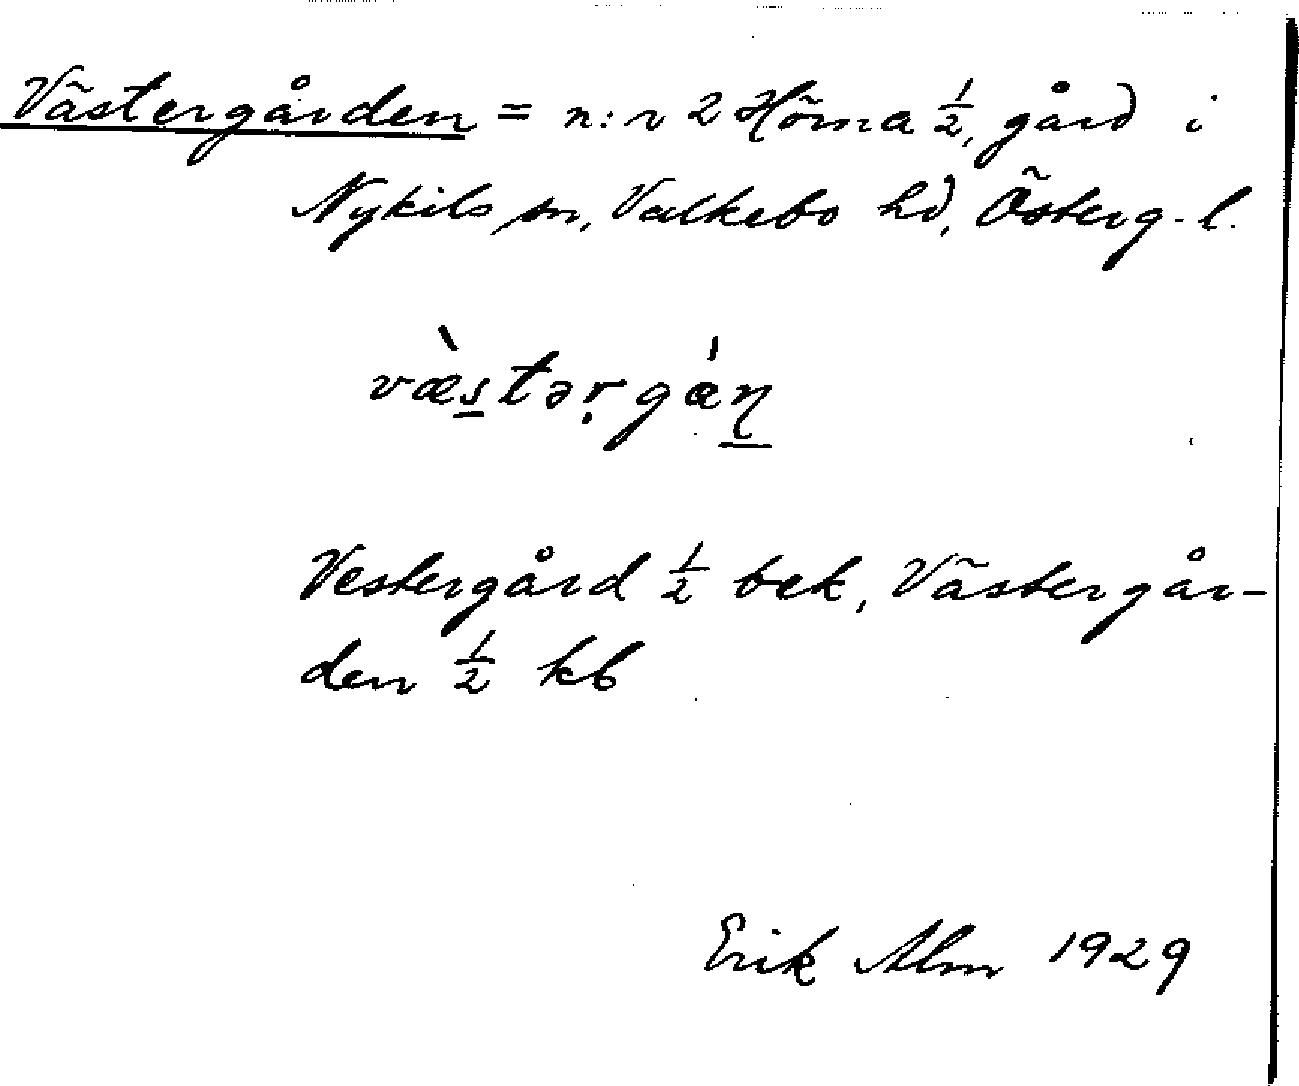 Västergården = n:r 2 Höma ½, gård i
Nykils sn, Valkebo hd, Österg-l.
væ̀stərgǽn
Vestergård ½ bek, Västergår-
den ½ kb
Erik Alm 1929